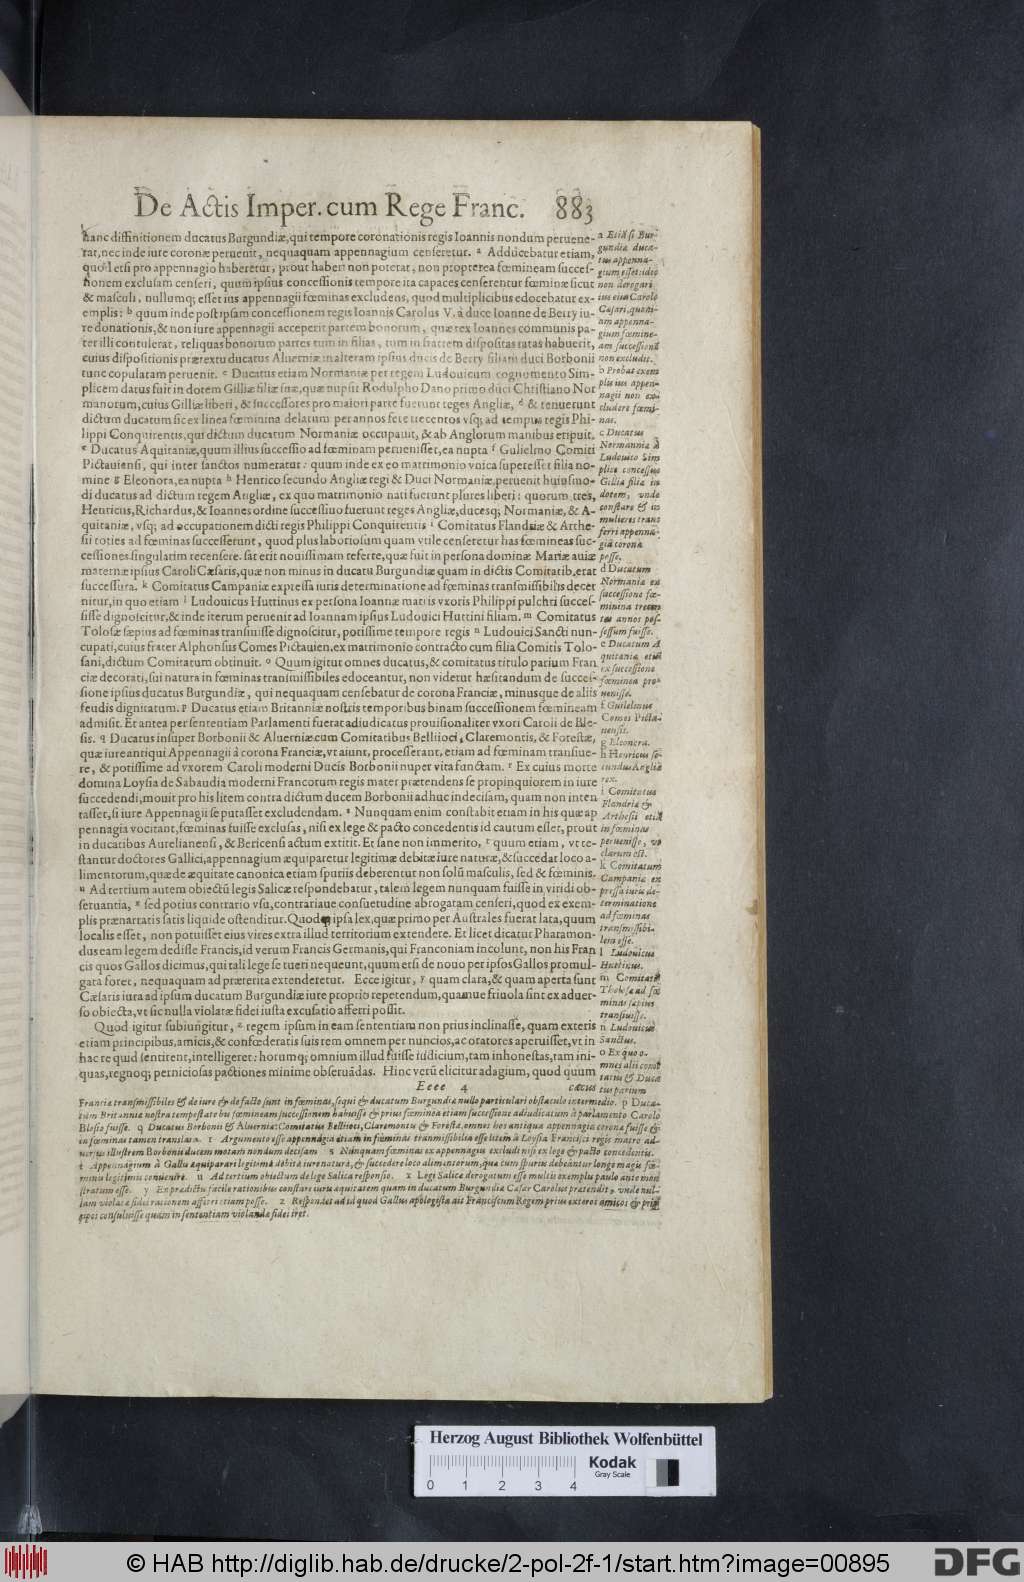 De Actis Imper. cum Rege Franc. 883
hanc diffinitionem ducatus Burgundiæ, qui tempore coronationis regis Ioannis nondum peruene-
rat, nec inde iure coronæ peruenit, nequaquam appennagium censeretur. a Adducebatur etiam,
quòd etsi pro appennagio haberetur, prout haberi non poterat, non propterea fœmineam succes-
sionem exclusam censeri, quum ipsius concessionis tempore ita capaces censerentur fœminæ sicut
& masculi, nullumq; esset ius appennagii fœminas excludens, quod multiplicibus edocebatur ex-
emplis: b quum inde post ipsam concessionem regis Ioannis Carolus V. à duce Ioanne de Berry iu-
re donationis, & non iure appennagii acceperit partem bonorum, quæ rex Ioannes communis pa-
ter illi contulerat, reliquas bonorum partes tum in filias, tum in fratrem dispositas ratas habuerit,
cuius dispositionis prætextu ducatus Aluerniæ in alteram ipsius ducis de Berry filiam duci Borbonii
tunc copulatam peruenit. c Ducatus etiam Normaniæ per regem Ludouicum cognomento Sim-
plicem datus fuit in dotem Gilliæ filiæ suæ, quæ nupsit Rodulpho Dano primo duci Christiano Nor
manorum, cuius Gilliæ liberi, & successores pro maiori parte fuerunt reges Angliæ, d & tenuerunt
dictum ducatum sic ex linea fœminina delatum per annos fere trecentos vsq; ad tempus regis Phi-
lippi Conquirentis, qui dictum ducatum Normaniæ occupauit, & ab Anglorum manibus eripuit.
e Ducatus Aquitaniæ, quum illius successio ad fœminam peruenisset, ea nupta f Gulielmo Comiti
Pictauiensi, qui inter sanctos numeratur: quum inde ex eo matrimonio vnica superesset filia no-
mine g Eleonora, ea nupta h Henrico secundo Angliæ regi & Duci Normaniæ, peruenit huiusmo-
di ducatus ad dictum regem Angliæ, ex quo matrimonio nati fuerunt plures liberi: quorum tres,
Henricus, Richardus, & Ioannes ordine successiuo fuerunt reges Angliæ, ducesq; Normaniæ, & A-
quitaniæ, vsq; ad occupationem dicti regis Philippi Conquirentis i Comitatus Flandriæ & Arthe-
sii toties ad fœminas successerunt, quod plus laboriosum quam vtile censeretur has fœmineas suc-
cessiones singulatim recensere. sat erit nouissimam referre, quæ fuit in persona dominæ Mariæ auiæ
maternæ ipsius Caroli Cæsaris, quæ non minus in ducatu Burgundiæ quam in dictis Comitatib, erat
successura. k Comitatus Campaniæ expressa iuris determinatione ad fœminas transmissibilis decer
nitur, in quo etiam l Ludouicus Huttinus ex persona Ioannæ matris vxoris Philippi pulchri succes-
sisse dignoscitur, & inde iterum peruenit ad Ioannam ipsius Ludouici Huttini filiam. m Comitatus
Tolosæ sæpius ad fœminas transiuisse dignoscitur, potissime tempore regis n Ludouici Sancti nun-
cupati, cuius frater Alphonsus Comes Pictauien. ex matrimonio contracto cum filia Comitis Tolo-
sani, dictum Comitatum obtinuit. o Quum igitur omnes ducatus, & comitatus titulo parium Fran
ciæ decorati, sui natura in fœminas transmissibiles edoceantur, non videtur hæsitandum de succes-
sione ipsius ducatus Burgundiæ, qui nequaquam censebatur de corona Franciæ, minusque de aliis
feudis dignitatum. p Ducatus etiam Britanniæ nostris temporibus binam successionem fœmineam
admisit. Et antea per sententiam Parlamenti fuerat adiudicatus prouisionaliter vxori Caroli de Ble-
sis. q Ducatus insuper Borbonii & Aluerniæ cum Comitatibus Bellioci, Claremontis, & Forestæ,
quæ iure antiqui Appennagii à corona Franciæ, vt aiunt, processerant, etiam ad fœminam transiue-
re, & potissime ad vxorem Caroli moderni Ducis Borbonii nuper vita functam. r Ex cuius morte
domina Loysia de Sabaudia moderni Francorum regis mater prætendens se propinquiorem in iure
succedendi, mouit pro his litem contra dictum ducem Borbonii adhuc indecisam, quam non inten
tasset, si iure Appennagii se putasset excludendam. s Nunquam enim constabit etiam in his quæ ap
pennagia vocitant, fœminas fuisse exclusas, nisi ex lege & pacto concedentis id cautum esset, prout
in ducatibus Aurelianensi, & Bericensi actum extitit. Et sane non immerito, t quum etiam, vt te-
stantur doctores Gallici, appennagium æquiparetur legitimæ debitæ iure naturæ, & succedat loco a-
limentorum, quæ de æquitate canonica etiam spuriis deberentur non solū masculis, sed & fœminis.
u Ad tertium autem obiectū legis Salicæ respondebatur, talem legem nunquam fuisse in viridi ob-
seruantia, x sed potius contrario vsu, contrariaue consuetudine abrogatam censeri, quod ex exem-
plis prænarratis satis liquide ostenditur. Quodq; ipsa lex, quæ primo per Australes fuerat lata, quum
localis esset, non potuisset eius vires extra illud territorium extendere. Et licet dicatur Pharamon-
dus eam legem dedisse Francis, id verum Francis Germanis, qui Franconiam incolunt, non his Fran
cis quos Gallos dicimus, qui tali lege se tueri nequeunt, quum etsi de nouo per ipsos Gallos promul-
gata foret, nequaquam ad præterita extenderetur. Ecce igitur, y quam clara, & quam aperta sunt
Cæsaris iura ad ipsum ducatum Burgundiæ iure proprio repetendum, quamue friuola sint ex aduer-
so obiecta, vt sic nulla violatæ fidei iusta excusatio afferri possit.
Quod igitur subiungitur, z regem ipsum in eam sententiam non prius inclinasse, quam exteris
etiam principibus, amicis, & confœderatis suis rem omnem per nuncios, ac oratores aperuisset, vt in
hac re quid sentirent, intelligeret: horumq; omnium illud fuisse iudicium, tam inhonestas, tam ini-
quas, regnoq; perniciosas pactiones minime obseruādas. Hinc verū elicitur adagium, quod quum
Eeee 4 cæcus
a Etiā si Bur-
gundiæ duca-
tus appenna-
gium esset: ideo
non derogari
ius eius Carolo
Cæsari, quoni-
am appenna-
gium fœmine-
am successionē
non excludit.
b Probat exem
plis ius appen-
nagii non ex-
cludere fœmi-
nas.
c Ducatus
Normanniæ à
Ludouico Sim
plice concessus
Gilliæ filiæ in
dotem, vnde
constare & in
mulieres trans
ferri appenna-
gia coronæ
posse.
d Ducatum
Normaniæ ex
successione fœ-
minina trecen
tos annos pos-
sessum fuisse.
e Ducatum A
quitaniæ etiā
ex successione
fœminea pro-
uenisse.
f Guilelmus
Comes Picta-
uensis.
g Eleonora.
h Henricus se-
cundus Angliæ
rex.
i Comitatus
Flandriæ &
Arthesii etiā
in fœminas
peruenisse, vt
clarum est.
k Comitatum
Campaniæ ex
pressa iuris de-
terminatione
ad fœminas
transmissibi-
lem esse.
l Ludouicus
Huttinus.
m Comitatū
Tholosæ ad fœ
minas sæpius
transiuisse.
n Ludouicus
Sanctus.
o Ex quo o-
mnes alii comi
tatus & Duca
tus parium
Franciæ transmissibiles & de iure & de facto sunt in fœminas, sequi & ducatum Burgundiæ nullo particulari obstaculo intermedio. p Duca-
tum Britanniæ nostra tempestate bis fœmineam successionem habuisse & prius fœmineæ etiam successione adiudicatum à parlamento Carolo
Blosio fuisse. q Ducatus Borbonii & Aluerniæ: Comitatus Bellioci, Claremontis & Forestæ, omnes hos antiqua appennagia coronæ fuisse &
in fœminas tamen translata. r Argumento esse appennagia etiam in fœminas tranmissibilia esse litem à Loysia Francisci regis matre ad-
uersus illustrem Borbonii ducem motam nondum decisam s Nunquam fœminas ex appennagiis excludi nisi ex lege & pacto concedentis.
t Appennagium à Gallis æquiparari legitimæ debitæ iure naturæ, & succedere loco alimentorum, quæ cum spuriis debeantur longe magis fœ-
minis legitimis conuenire. u Ad tertium obiectum de lege Salica responsio. x Legi Salicæ derogatum esse multis exemplis paulo ante mon
stratum esse. y Ex prædictis facile rationibus constare iuris æquitatem quam in ducatu Burgundiæ Cæsar Carolus prætendit, vnde nul-
lam violatæ fidei rationem afferri etiam posse. z Respondet ad id quod Gallus apologista ait Franciscum Regem prius exteros amicos & prin
cipes consuluisse quam in sententiam violandæ fidei iret.
Herzog August Bibliothek Wolfenbüttel
Kodak
Gray Scale
0 1 2 3 4
© HAB http://diglib.hab.de/drucke/2-pol-2f-1/start.htm?image=00895
DFG